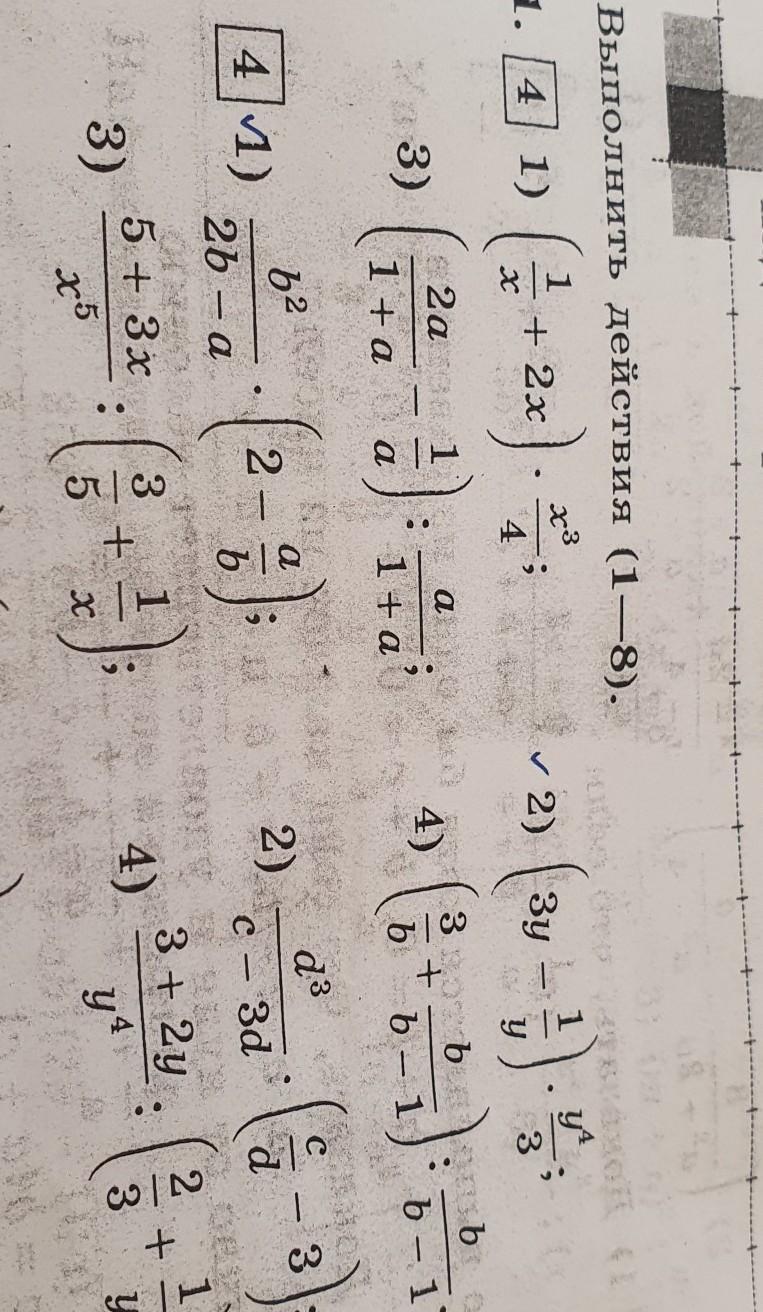 Выполнить действия (1—8).
1. 4 1) (1/x + 2x) · x³/4; 2) (3y − 1/y) · y⁴/3;
3) (2a/(1 + a) − 1/a) : a/(1 + a); 4) (3/b + b/(b − 1)) : b/(b − 1)
4 1) b²/(2b − a) · (2 − a/b); 2) d³/(c − 3d) · (c/d − 3)
3) (5 + 3x)/x⁵ : (3/5 + 1/x); 4) (3 + 2y)/y⁴ : (2/3 + 1/y)